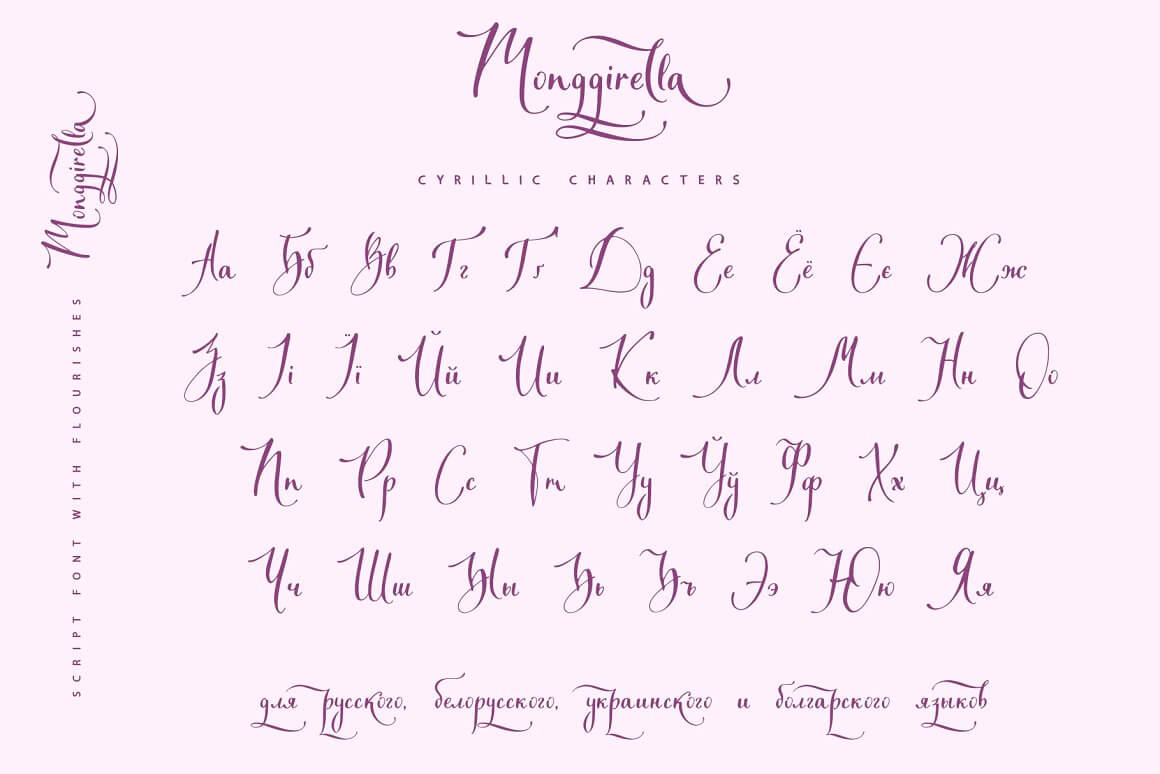 Monggirella
CYRILLIC CHARACTERS
Аа Бб Вв Гг Ґґ Дд Ее Ёё Єє Жж
Зз Іі Її Йй Ии Кк Лл Мм Нн Оо
Пп Рр Сс Тт Уу Ўў Фф Хх Цц
Чч Шш Ыы Ьь Ъъ Ээ Юю Яя
для русского, белорусского, украинского и болгарского языков
Monggirella
SCRIPT FONT WITH FLOURISHES